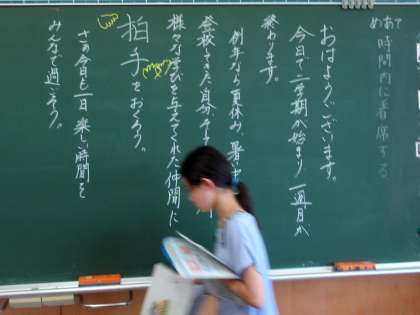 めあて
時間内に着席する
おはようございます。
今日で二学期が始まり一週間が
終わります。
例年なら夏休み、暑い
登校できた自分が
様々な学びを与えてくれた仲間に
拍手をおくろう。
さぁ今日も一日楽しい時間を
みんなで過ごそう。